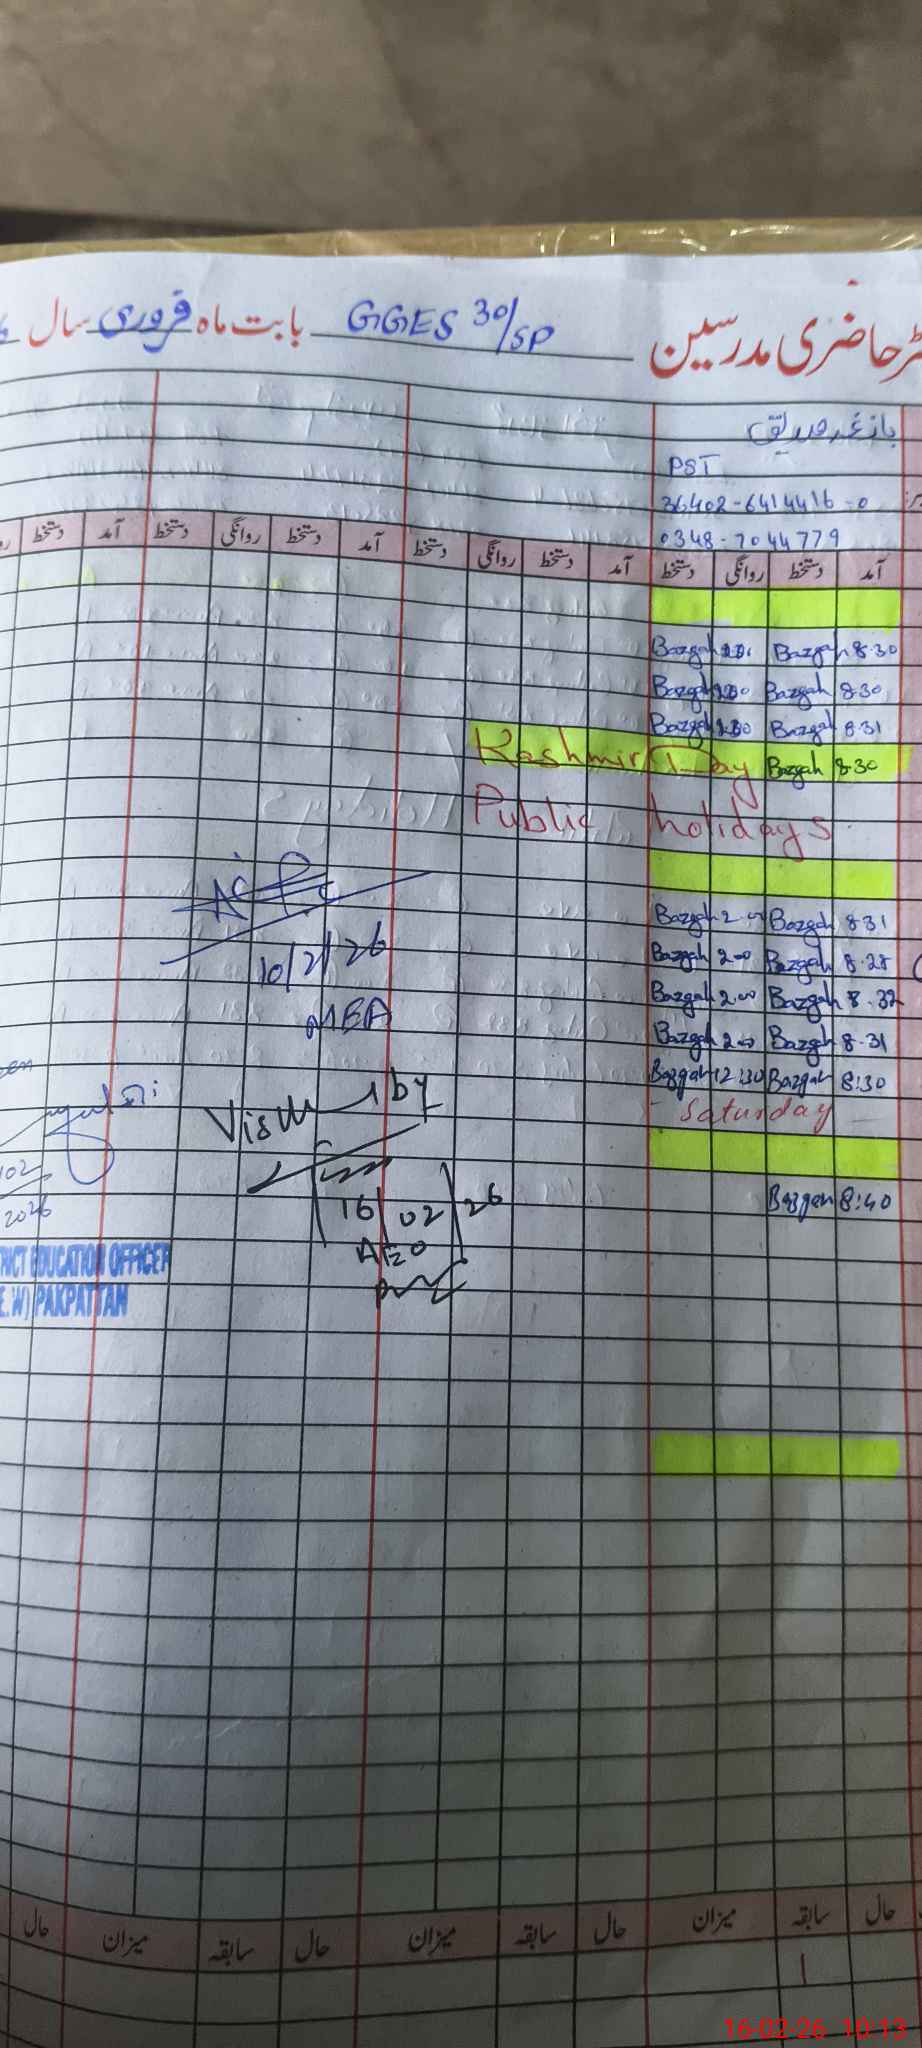 ٹر حاضری مدرسین GGES 30/SP بابت ماہ فروری سال
PST
36402-6414416-0
0348-7044779
آمد دستخط روانگی دستخط آمد دستخط روانگی دستخط آمد دستخط روانگی دستخط آمد دستخط
Bazgah 8.30 Bazgah
Bazgah 8.30 Bazgah
Bazgah 8.31 Bazgah
Kashmir Day Bazgah 8.30
Public holidays
Bazgah 2.00 Bazgah 8.31
Bazgah 2.00 Bazgah 8.28
Bazgah 2.00 Bazgah 8.32
Bazgah 2.00 Bazgah 8.31
Bazgah 12:30 Bazgah 8:30
Saturday
Bazgah 8:40
10/2/26
MEA
by
16/02/26
AEO
2026
RICT EDUCATION OFFICER
E.W) PAKPATTAN
حال سابقہ میزان حال سابقہ میزان حال سابقہ میزان حال
1
16-02-26 10:13